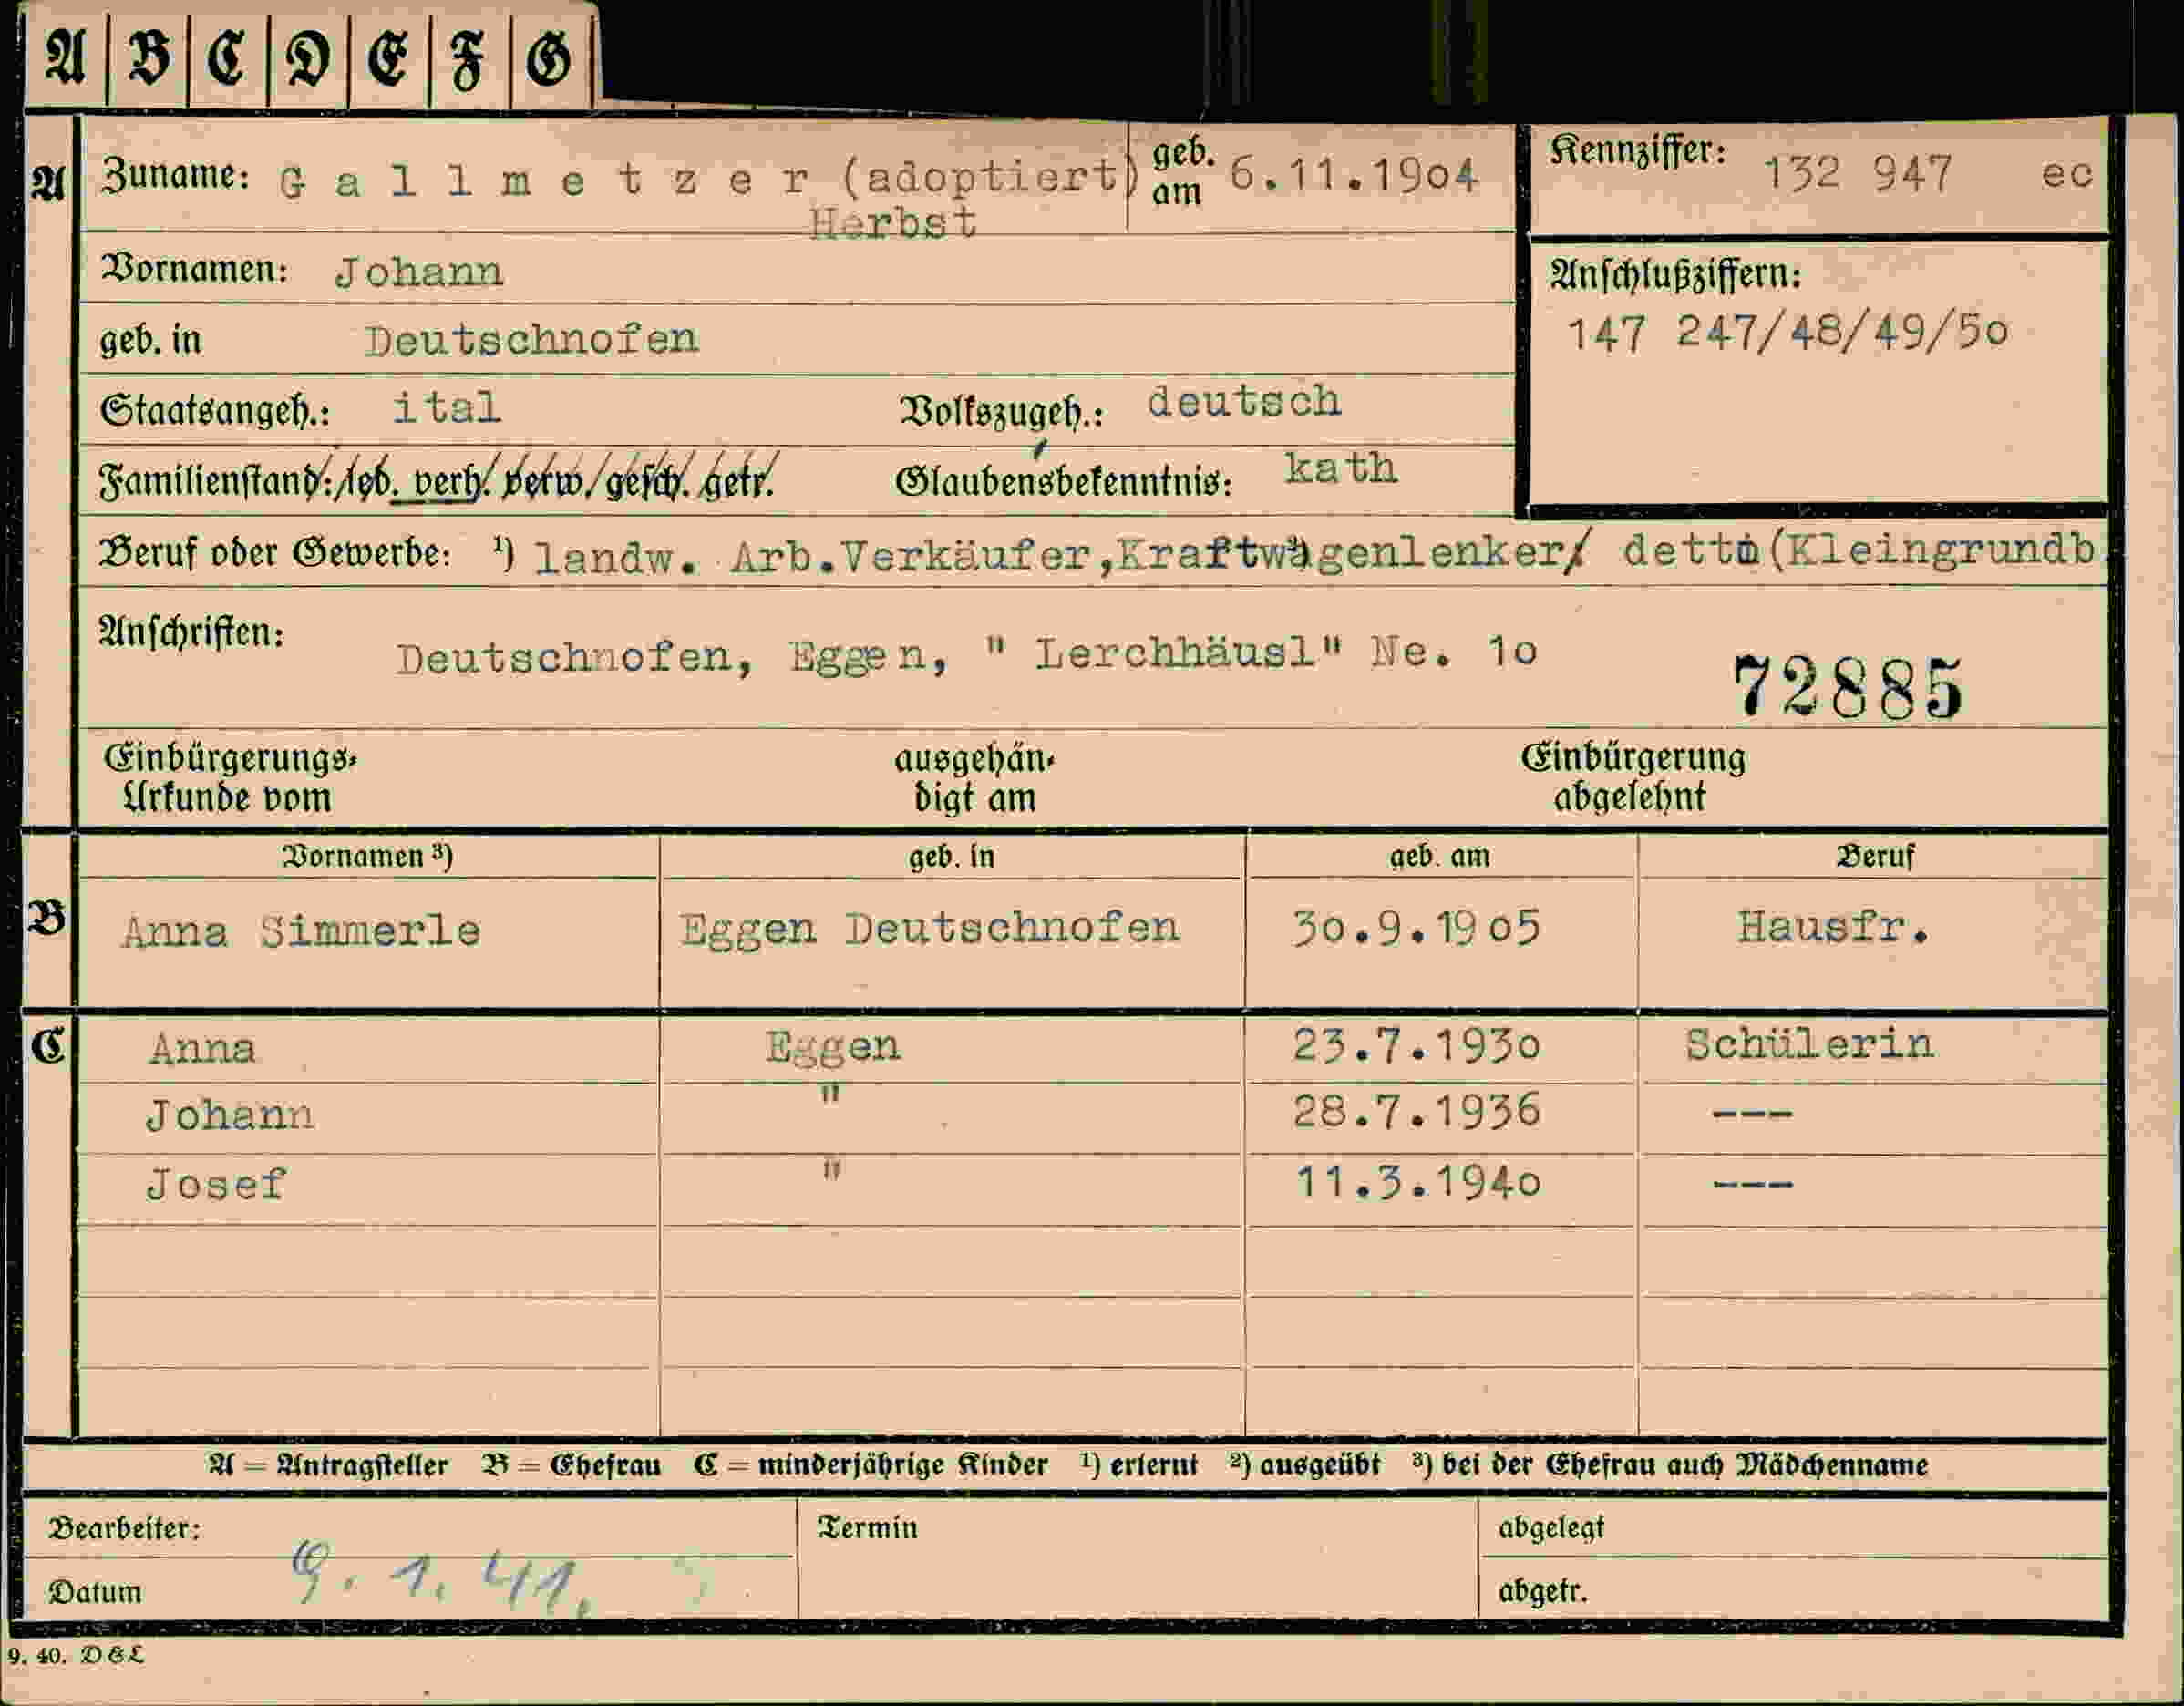 A B C D E F G
A Zuname: Gallmetzer (adoptiert) geb. am 6.11.1904 Kennziffer: 132 947 ec
Herbst
Vornamen: Johann Anschlußziffern:
geb. in Deutschnofen 147 247/48/49/50
Staatsangeh.: ital Volkszugeh.: deutsch
Familienstand: led. verh. verw. gesch. getr. Glaubensbekenntnis: kath
Beruf oder Gewerbe: ¹) landw. Arb.Verkäufer,Kraftwagenlenker/ detto(Kleingrundb.
Anschriften: Deutschnofen, Eggen, " Lerchhäusl" Ne. 10
72885
Einbürgerungs- ausgehän- Einbürgerung
Urkunde vom digt am abgelehnt
Vornamen ³) geb. in geb. am Beruf
B Anna Simmerle Eggen Deutschnofen 30.9.1905 Hausfr.
C Anna Eggen 23.7.1930 Schülerin
Johann " 28.7.1936 ---
Josef " 11.3.1940 ---
A = Antragsteller B = Ehefrau C = minderjährige Kinder ¹) erlernt ²) ausgeübt ³) bei der Ehefrau auch Mädchenname
Bearbeiter: Termin abgelegt
Datum 9. 1. 41. abgetr.
9. 40. D&L